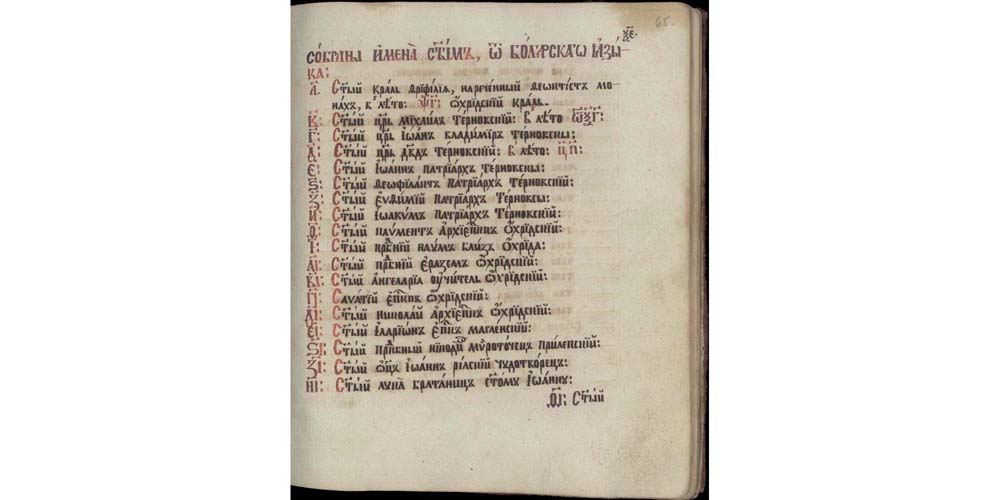 65.
ѯ҃е.
Собраны имена̀ ст҃ы́мъ, ѿ Болгарскаѡ Ꙗзы-
ка:
а҃. Ст҃ы́й краль Ѳрїфилїа, нарече́нный Ѳеѡктїстъ мо-
нахъ, в лѣто: ѱ҃г: Ѡхри́дскїй краль.
в҃: Ст҃ы́й цр҃ь Мїхаилъ те́рновскїй: в лѣто ѿѯ҃г:
г҃: Ст҃ы́й цр҃ь Іѡа́нъ Владимїръ те́рновскы:
д҃: Ст҃ы́й цр҃ь Дв҃дъ те́рновскїй: в лѣто: ц҃п:
є҃: Ст҃ы́й Іѡаннъ патрїархъ те́рновскы:
ѕ҃: Ст҃ы́й Ѳеѡфїлактъ патрїархъ те́рновскїй:
з҃: Ст҃ы́й Еѵѳѵ́мїй патрїархъ те́рновскы:
и҃: Ст҃ы́й Іѡакѵмъ патрїархъ те́рновскїй:
ѳ҃: Ст҃ы́й архїепⷭ҇кпъ ѡ҆хри́дскїй:
і҃: Ст҃ы́й прⷣбнїй Наумъ близъ ѡ҆хри́да:
аі҃: Ст҃ы́й прⷣбнїй Ера́земъ ѡ҆хри́дскїй:
ві҃: Ст҃ы́й Ангеларїа оучи́тель ѡ҆хри́дскїй:
гі҃: Саватїй епⷭ҇кпъ ѡ҆хри́дскїй:
ді҃: Ст҃ы́й Николай архїепⷭ҇кпъ ѡ҆хри́дскїй:
еі҃: Ст҃ы́й Іларїѡнъ епⷭ҇кпъ магленскїй:
ѕі҃: Ст҃ы́й прⷣбный мѵроточецъ прилепскїй:
зі҃: Ст҃ы́й ѡ҃цъ Іѡаннъ рилскїй чудотво́рецъ:
иі҃: Ст҃ы́й Лука братаницъ ст҃ому Іѡанну:
ѳ҃і: Ст҃ы́й